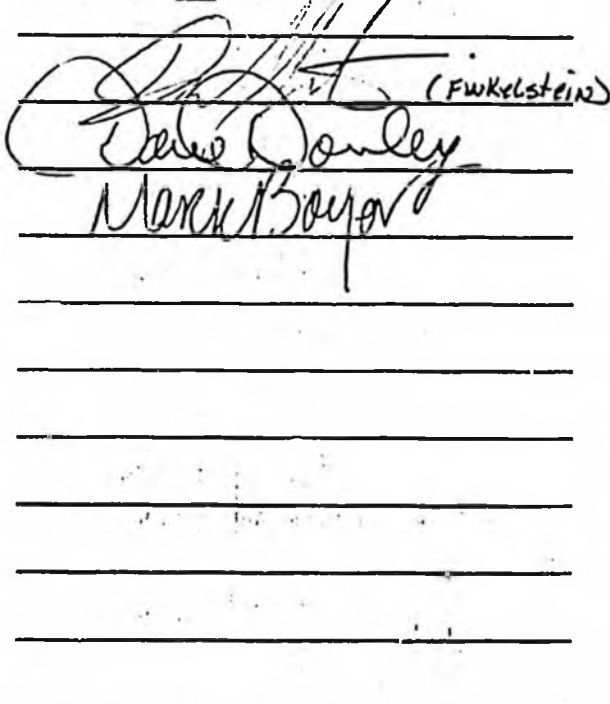 (Finkelstein)
Dave Donley
Mark Boyer